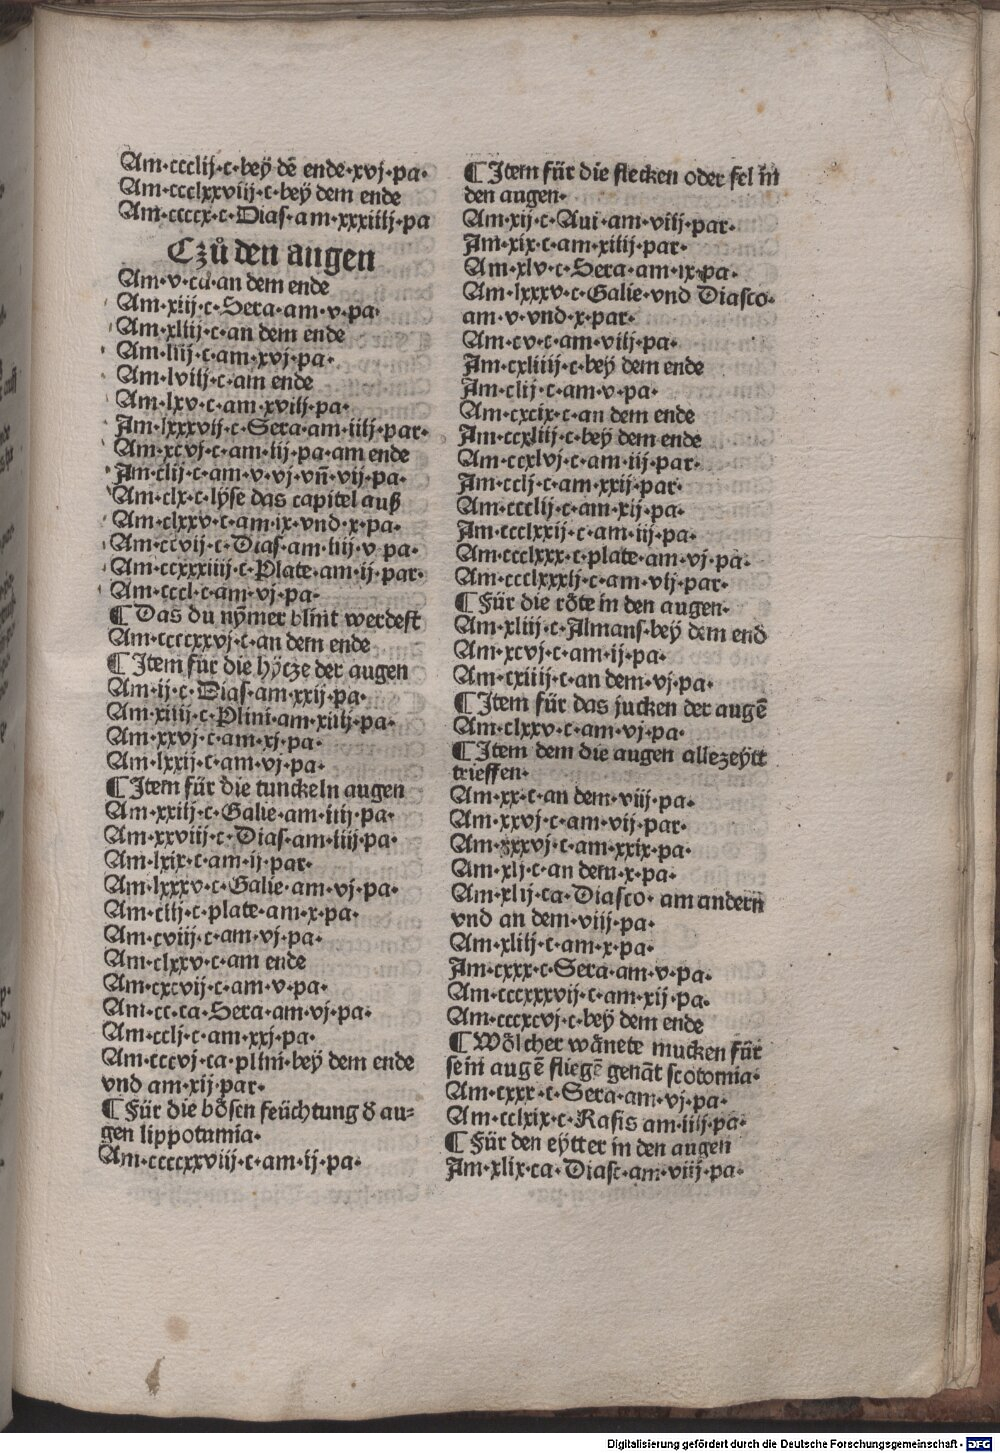 Am·ccclij·c·beÿ dē ende·xvj·pa·
Am·ccclxxviij·c·beÿ dem ende
Am·ccccx·c·Dias·am·xxxiiij·pa
Czů den augen
Am·v·ca·an dem ende
Am·xiij·c·Sera·am·v·pa·
Am·xliij·c·an dem ende
Am·liij·c·am·xvj·pa·
Am·lviij·c·am ende
Am·lxv·c·am·xviij·pa·
Am·lxxxvij·c·Sera·am·iiij·par·
Am·xcvj·c·am·iij·pa·am ende
Am·clij·c·am·v·vj·vn̄·vij·pa·
Am·clx·c·lÿse das capitel auß
Am·clxxv·c·am·ix·vnd·x·pa·
Am·ccvij·c·Dias·am·iiij·v·pa·
Am·ccxxxiiij·c·Plate·am·ij·par·
Am·cccl·c·am·vj·pa·
¶ Das du nÿmer blint werdest
Am·ccccxxvj·c·an dem ende
¶ Item für die hÿcze der augen
Am·ij·c·Dias·am·xxij·pa·
Am·xiiij·c·Plini·am·xiiij·pa·
Am·xxvj·c·am·xj·pa·
Am·lxxij·c·am·vj·pa·
¶ Item für die tunckeln augen
Am·xxiij·c·Galie·am·iiij·pa·
Am·xxviij·c·Dias·am·iiij·pa·
Am·lxix·c·am·ij·par·
Am·lxxxv·c·Galie·am·vj·pa·
Am·ciij·c·plate·am·x·pa·
Am·cviij·c·am·vj·pa·
Am·clxxv·c·am ende
Am·cxcvij·c·am·v·pa·
Am·cc·ca·Sera·am·vj·pa·
Am·cclj·c·am·xxj·pa·
Am·cccvj·ca·plini·beÿ dem ende
vnd am·xij·par·
¶ Für die bősen feüchtung ð au-
gen lippotumia·
Am·ccccxxviij·c·am·ij·pa·
¶ Item für die flecken oder fel in
den augen·
Am·xij·c·Aui·am·viij·par·
Am·xix·c·am·xiiij·par·
Am·xlv·c·Sera·am·ix·pa·
Am·lxxxv·c·Galie·vnd Diasco·
am·v·vnd·x·par·
Am·cv·c·am·viij·pa·
Am·cxliiij·c·beÿ dem ende
Am·clij·c·am·v·pa·
Am·cxcix·c·an dem ende
Am·ccxliij·c·beÿ dem ende
Am·ccxlvj·c·am·iij·par·
Am·cclj·c·am·xxij·par·
Am·ccclij·c·am·xij·pa·
Am·ccclxxij·c·am·iij·pa·
Am·ccclxxx·c·plate·am·vj·pa·
Am·ccclxxxij·c·am·vij·par·
¶ Für die rőte in den augen·
Am·xliij·c·Almans·beÿ dem end
Am·xcvj·c·am·ij·pa·
Am·cxiiij·c·an dem·vj·pa·
¶ Item für das jucken der augē
Am·clxxv·c·am·vj·pa·
¶ Item dem die augen allezeÿtt
trieffen·
Am·xx·c·an dem·viij·pa·
Am·xxvj·c·am·vij·par·
Am·xxxvj·c·am·xxix·pa·
Am·xlj·c·an dem·x·pa·
Am·xlij·ca·Diasco· am andern
vnd an dem·viij·pa·
Am·xliij·c·am·x·pa·
Am·cxxx·c·Sera·am·v·pa·
Am·cccxxxvij·c·am·xij·pa·
Am·cccxcvj·c·beÿ dem ende
¶ Wőlcher wānete mucken für
sein augē fliegē genāt scotomia·
Am·cxxx·c·Sera·am·vj·pa·
Am·cclxix·c·Rasis am·iiij·pa·
¶ Für den eÿtter in den augen
Am·xlix·ca·Diasc·am·viij·pa·
Digitalisierung gefördert durch die Deutsche Forschungsgemeinschaft - DFG